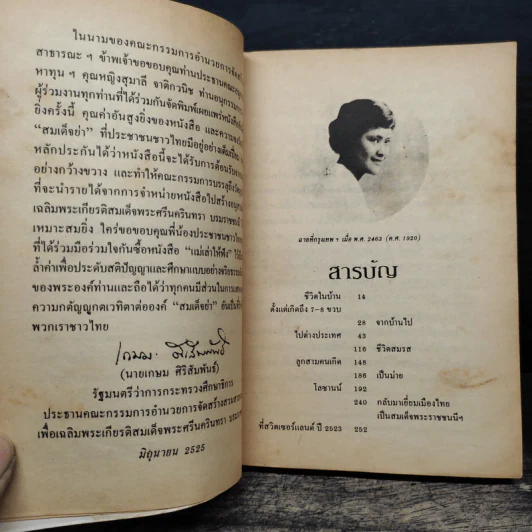 ในนามของคณะกรรมการอำนวยการจัดสร้
สาธารณะ ฯ ข้าพเจ้าขอขอบคุณท่านประธานคณะ
หาทุน ฯ คุณหญิงสุมาลี จาติกวนิช ท่านอนุกรรมก
ผู้ร่วมงานทุกท่านที่ได้ร่วมกันจัดพิมพ์เผยแพร่หนังสือ
ยิ่งครั้งนี้ คุณค่าอันสูงยิ่งของหนังสือ และความ
“สมเด็จย่า” ที่ประชาชนชาวไทยมีอยู่อย่างเต็มเปี่ยม
หลักประกันได้ว่าหนังสือนี้จะได้รับการต้อนรับ
อย่างกว้างขวาง และทำให้คณะกรรมการบรรลุถึง
ที่จะนำรายได้จากการจำหน่ายหนังสือไปสร้าง
เฉลิมพระเกียรติสมเด็จพระศรีนครินทรา บรมราชชนนี
เหมาะสมยิ่ง ใคร่ขอขอบคุณพี่น้องประชาชนชาว
ที่ได้ร่วมมือร่วมใจกันซื้อหนังสือ “แม่เล่าให้ฟัง”
ล้ำค่าเพื่อประดับสติปัญญาและศึกษาแบบอย่างจริยธรรม
ของพระองค์ท่านและถือได้ว่าทุกคนมีส่วนในการแสดง
ความกตัญญูกตเวทิตาต่อองค์ “สมเด็จย่า” อันเป็นที่
พวกเราชาวไทย
(นายเกษม ศิริสัมพันธ์)
รัฐมนตรีว่าการกระทรวงศึกษาธิการ
ประธานคณะกรรมการอำนวยการจัดสร้างสวนสาธารณะ
เพื่อเฉลิมพระเกียรติสมเด็จพระศรีนครินทรา บรมราช
มิถุนายน 2525
ฉายที่กรุงเทพ ฯ เมื่อ พ.ศ. 2463 (ค.ศ. 1920)
สารบัญ
ชีวิตในบ้าน 14
ตั้งแต่เกิดถึง 7-8 ขวบ
28 จากบ้านไป
ไปต่างประเทศ 43
116 ชีวิตสมรส
ลูกสามคนเกิด 148
186 เป็นม่าย
โลซานน์ 192
240 กลับมาเยี่ยมเมืองไทย
เป็นสมเด็จพระราชชนนีฯ
ที่สวิตเซอร์แลนด์ ปี 2523 252